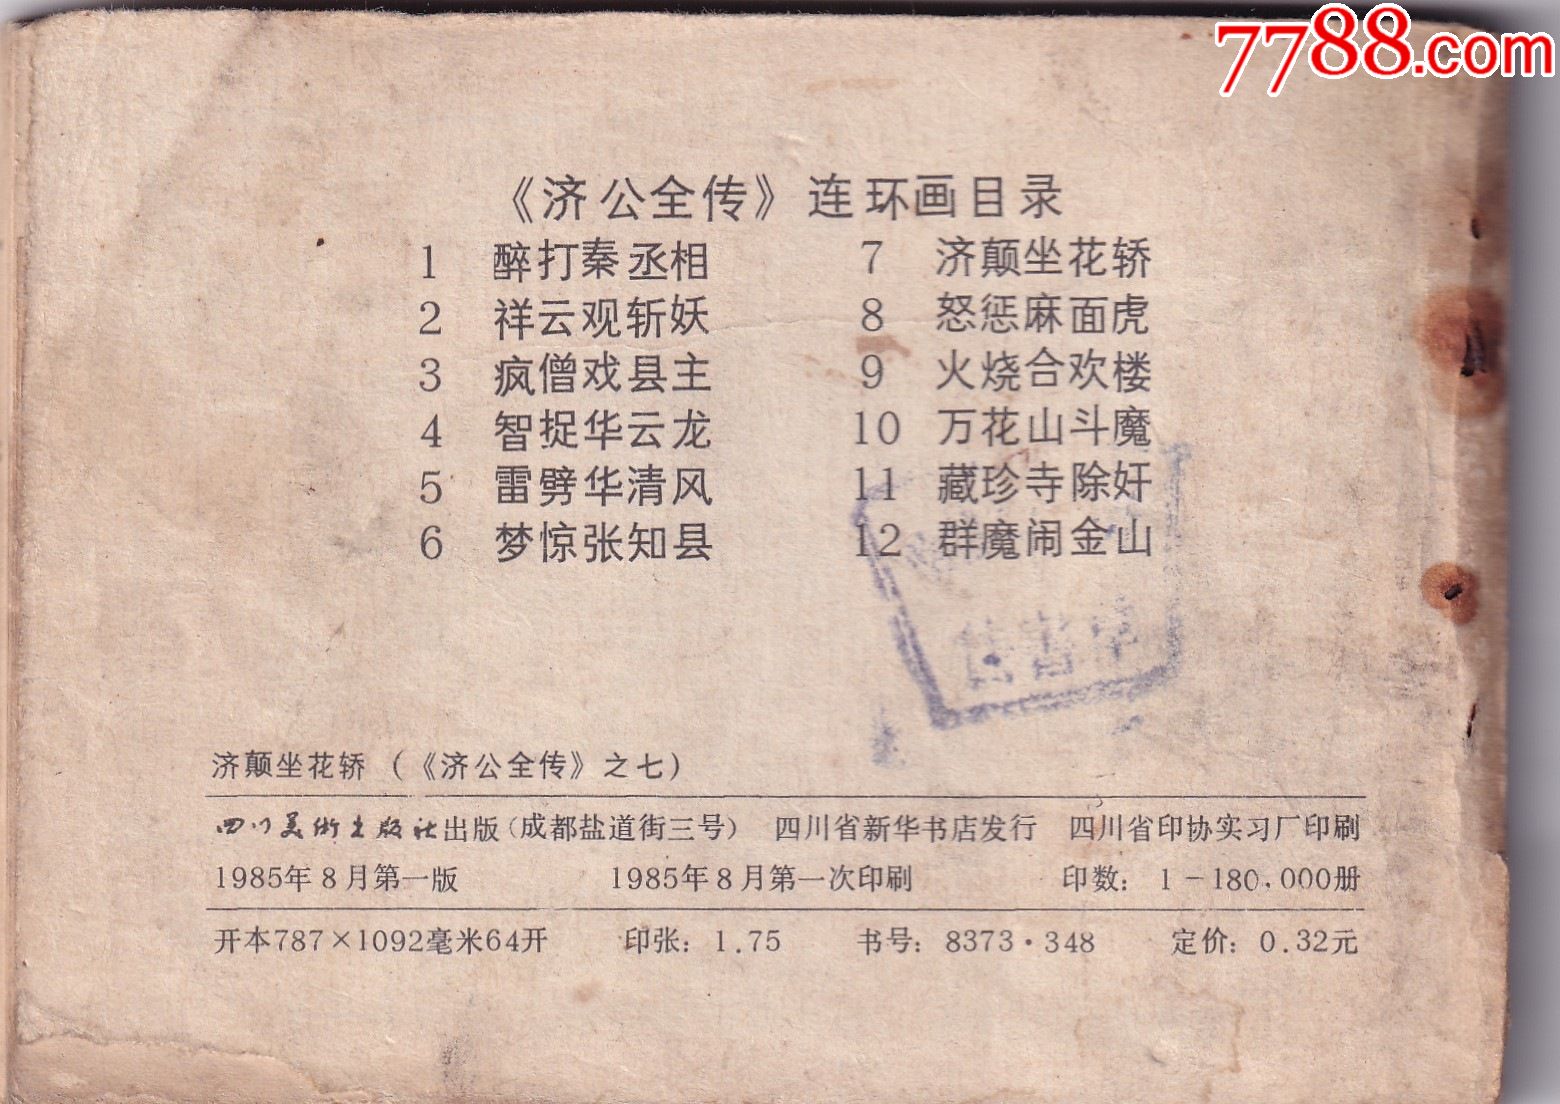 7788.com
《济公全传》连环画目录
1 醉打秦丞相
2 祥云观斩妖
3 疯僧戏县主
4 智捉华云龙
5 雷劈华清风
6 梦惊张知县
7 济颠坐花轿
8 怒惩麻面虎
9 火烧合欢楼
10 万花山斗魔
11 藏珍寺除奸
12 群魔闹金山
济颠坐花轿(《济公全传》之七)
四川美術出版社出版(成都盐道街三号) 四川省新华书店发行 四川省印协实习厂印刷
1985年8月第一版 1985年8月第一次印刷 印数：1-180,000册
开本787×1092毫米64开 印张：1.75 书号：8373·348 定价：0.32元